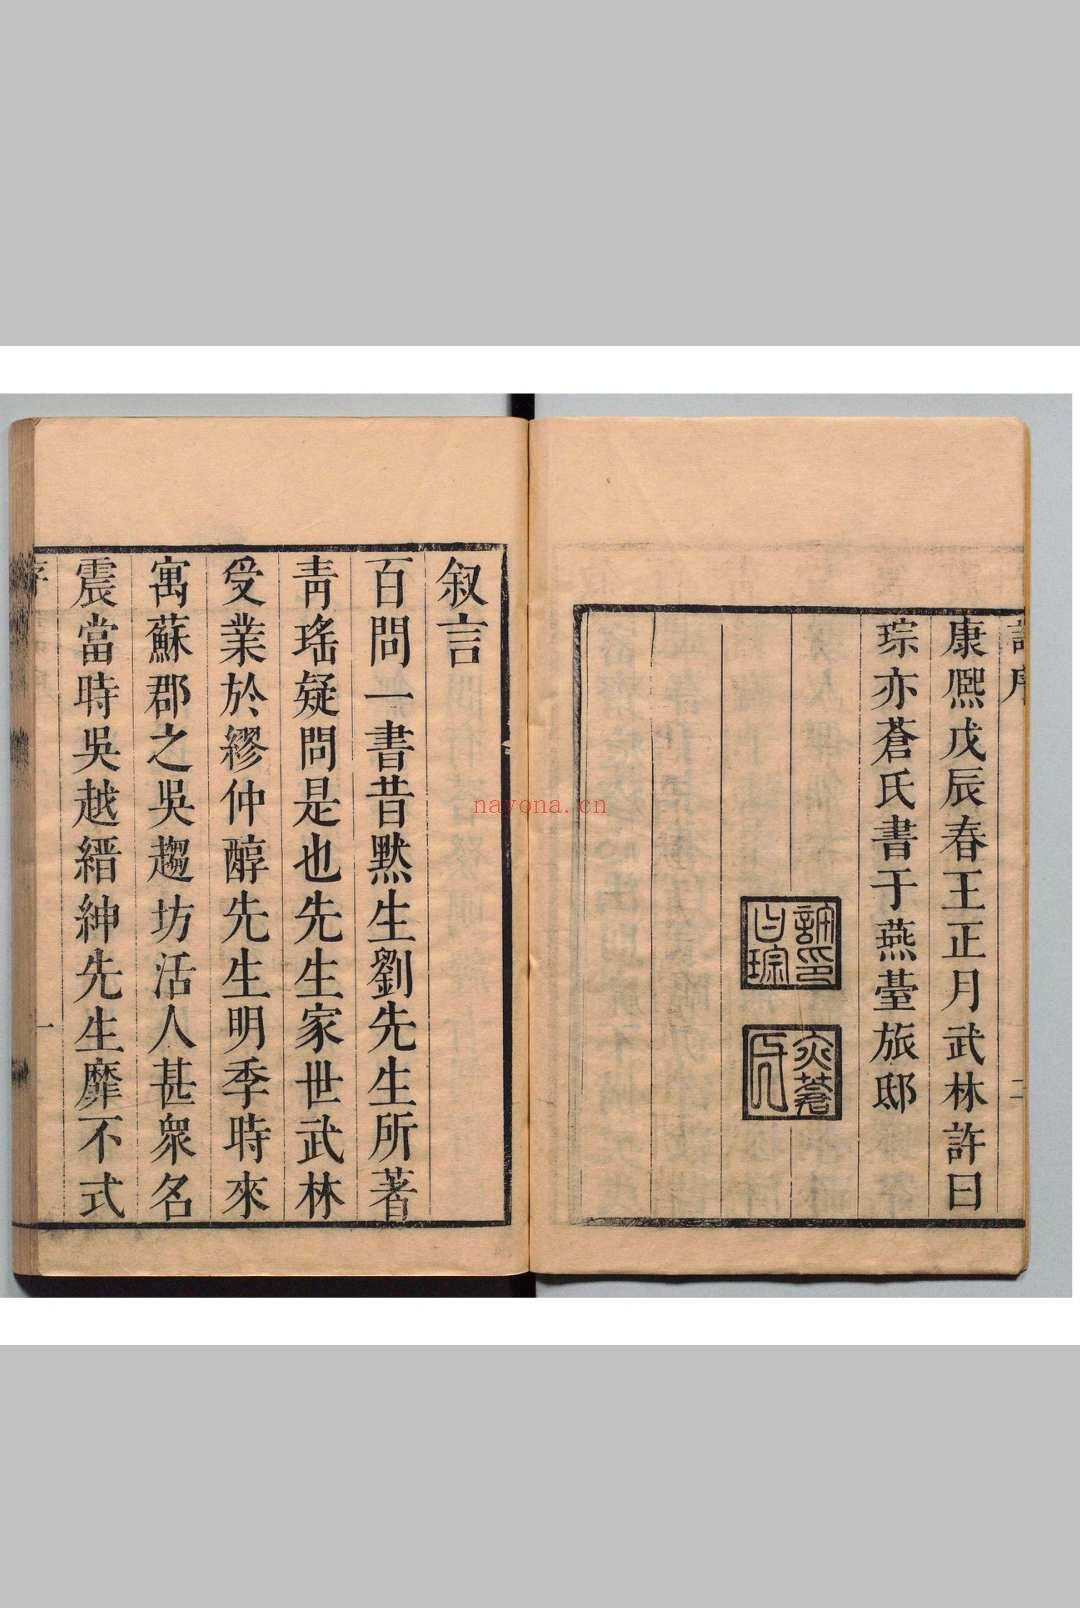 康熙戊辰春王正月武林許日
琮亦蒼氏書于燕臺旅邸
許印日琮
亦蒼氏
二
叙言
百問一書昔默生劉先生所著
青瑤疑問是也先生家世武林
受業於繆仲醇先生明季時來
寓蘇郡之吳趨坊活人甚衆名
震當時吳越縉紳先生靡不式
序
一
nayona.cn